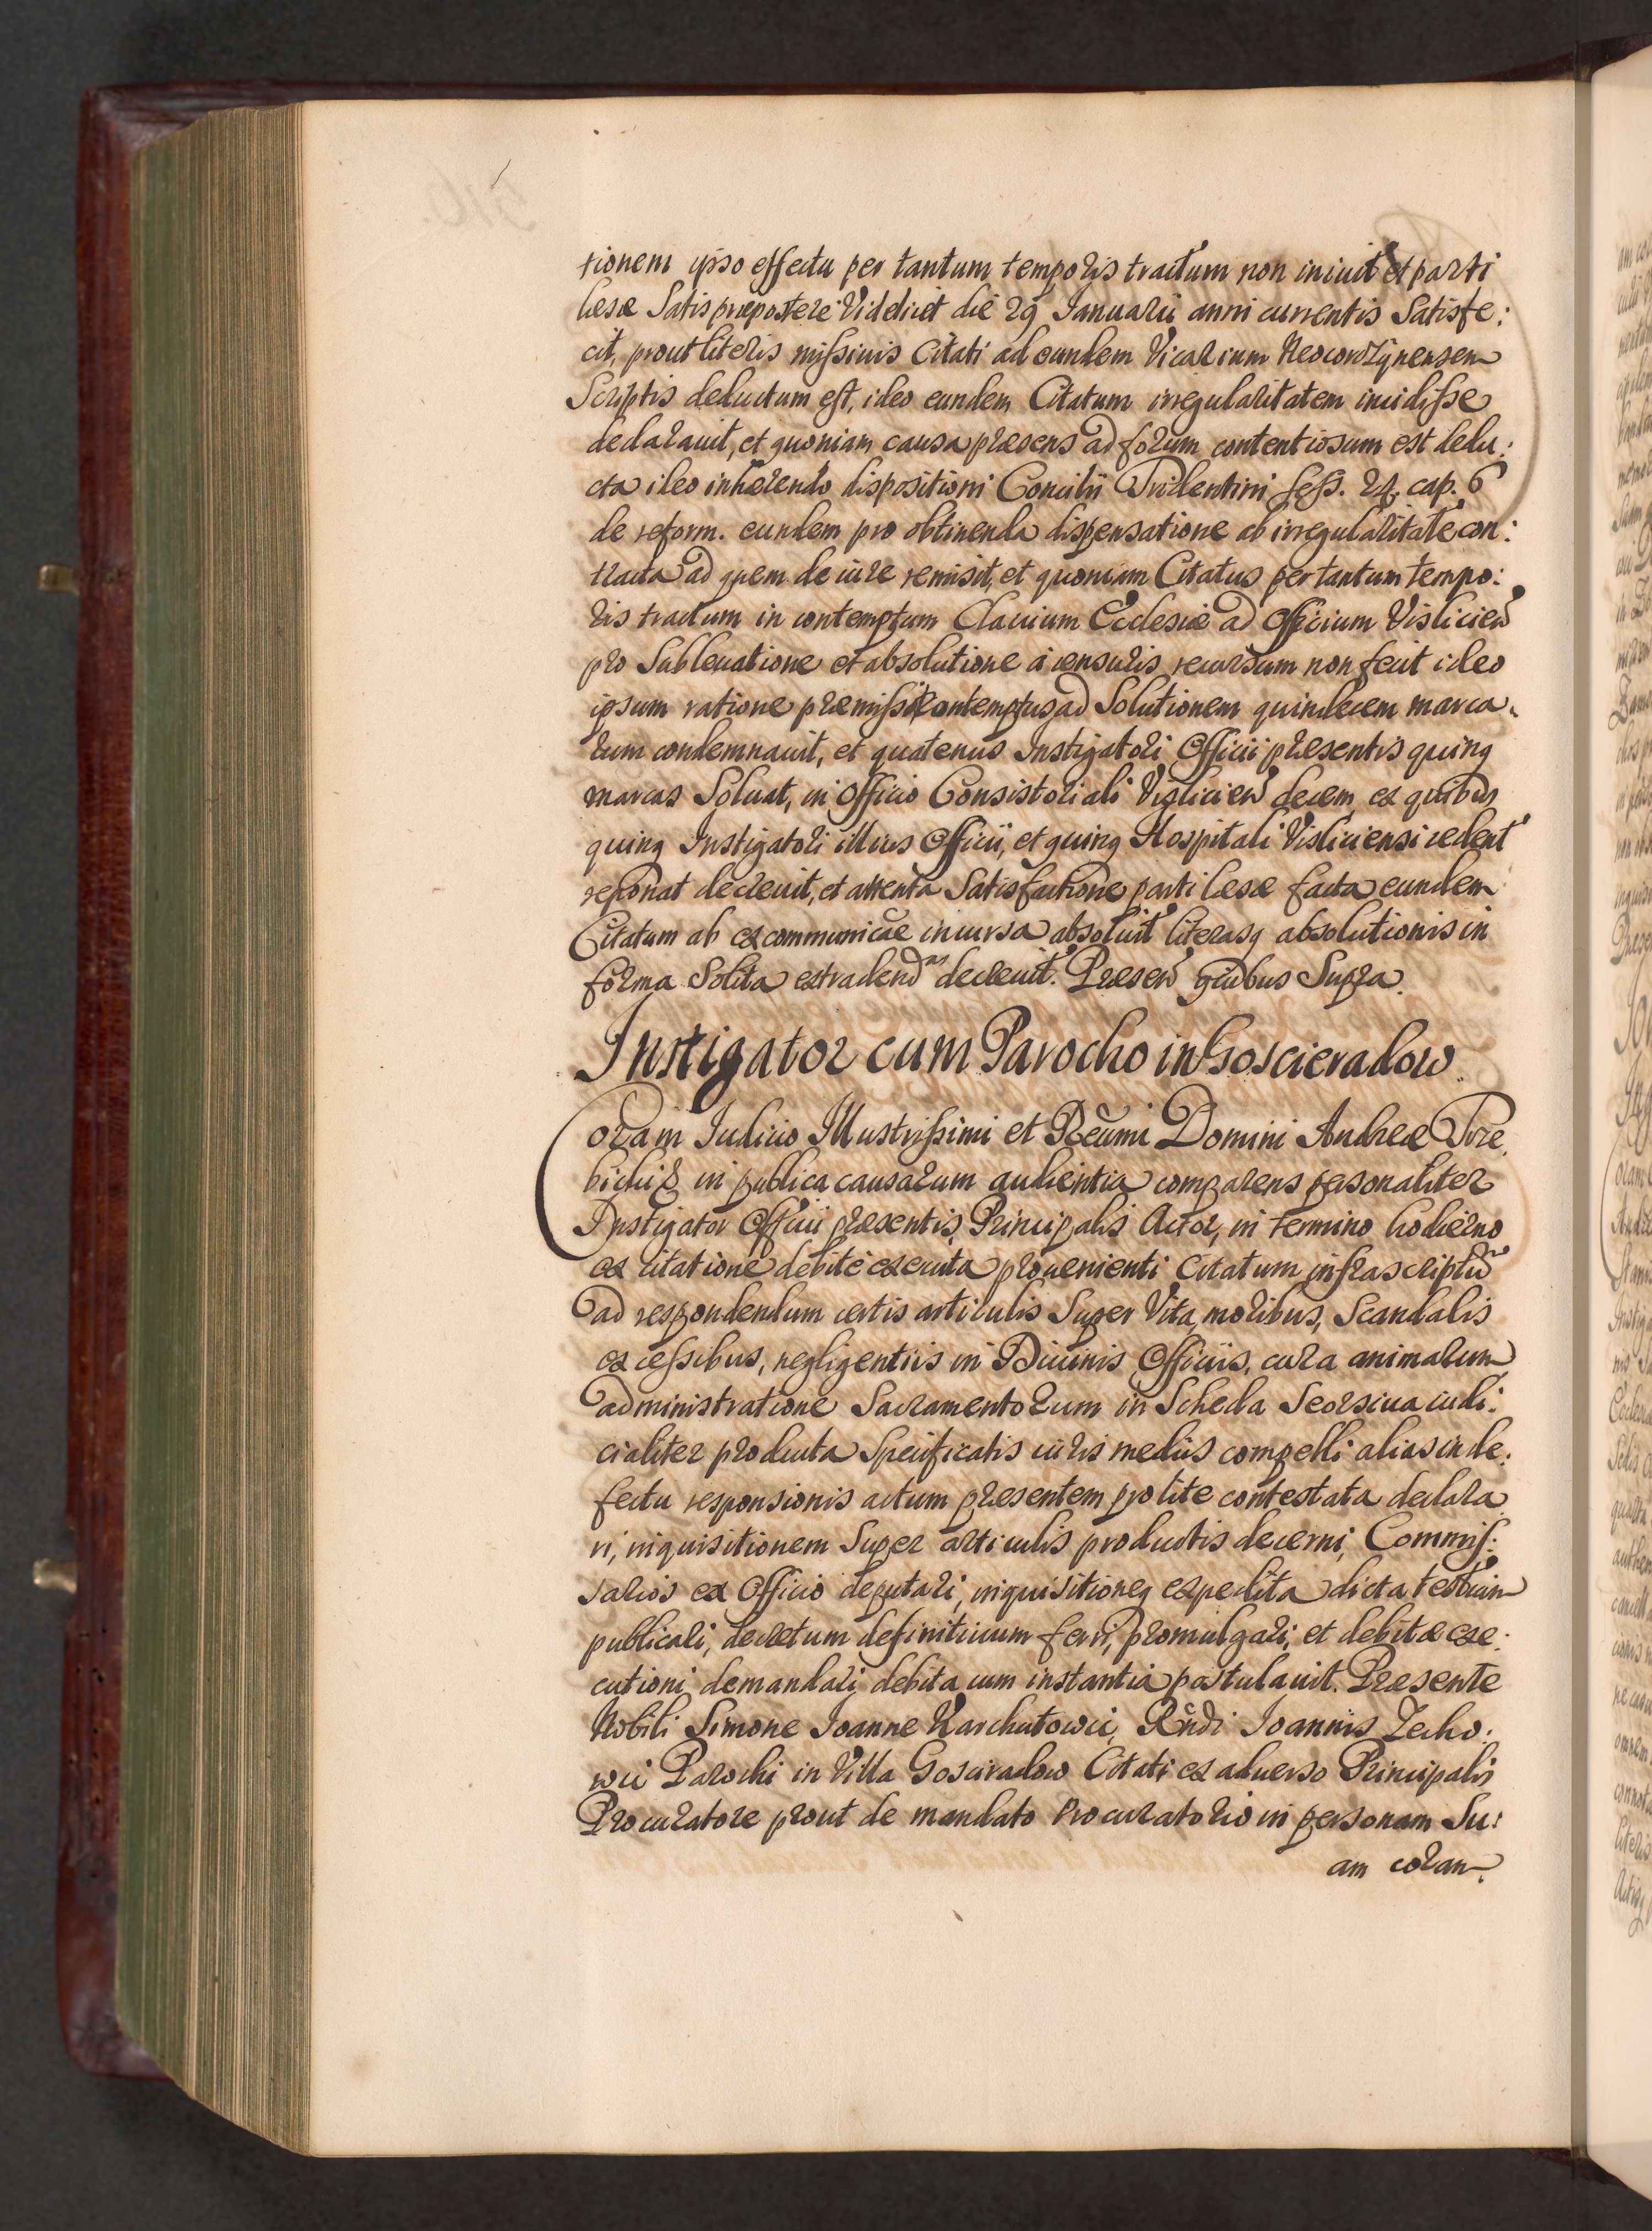 tionem ipso effectu per tantum temporis tractum non iniuit et parti
læsæ Satis præpostere Videlicet die 29 Ianuarii anni currentis Satisfe:
cit, prout literis missiuis Citati ad eundem Vicarium Neocorczynensem
Scriptis deductum est, ideo eundem Citatum irregularitatem incidisse
declarauit, et quoniam causa præsens ad forum contentiosum est dedu:
cta ideo inhærendo dispositioni Concilii Tridentini sess. 24. cap. 6
de reform. eundem pro obtinenda dispensatione ab irregularitate con:
tracta ad quem de iure remisit, et quoniam Citatus per tantum tempo:
ris tractum in contemptum Clauium Ecclesiæ ad Officium Visliciens
pro Subleuatione et absolutione à censuris recursum non fecit ideo
ipsum ratione præmissi contemptus ad Solutionem quindecem marca.
rum condemnauit, et quatenus Instigatori Officii præsentis quinq
marcas Soluat, in Officio Consistoriali Visliciens decem, ex quibus
quinq Instigatori illius Officii, et quinq Hospitali Visliciensi cedent
reponat decreuit, et attenta Satisfactione parti læsæ facta eundem
Citatum ab excommunicãe incursa absoluit literasq absolutionis in
forma Solita extradend as decreuit. Præsen quibus Supra.
Instigator cum Parocho in Goscieradow.
Coram Iudicio Illustrissimi et Rẽumi Domini Andreæ Trze.
bicki & in publica causarum audientia comparens personaliter
Instigator Officii præsentis, Principalis Actor, in termino hodierno
ex citatione debitè executa prouenienti Citatum infrascriptũ
ad respondendum certis articulis Super Vita, moribus, Scandalis
excessibus, negligentiis in Diuinis Officiis, cura animarum
administratione Sacramentorum in Scheda Seorsiua iudi:
cialiter producta Specificatis iuris mediis compelli alias in de:
fectu responsionis actum præsentem pro lite contestata declara
ri, inquisitionem Super articulis productis decerni, Commis:
sarios ex Officio deputari, inquisitioneq expedita dicta testium
publicari, decretum definitiuum ferri, promulgari, et debitæ exe:
cutioni demandari debita cum instantia postulauit. Præsente
Nobili Simone Ioanne Karchutowic, Rñdi Ioannis Zecho:
wic Parochi in Villa Gosciradow Citati ex aduerso Principalis
Procuratore prout de mandato Procuratorio in personam Su:
am coram.